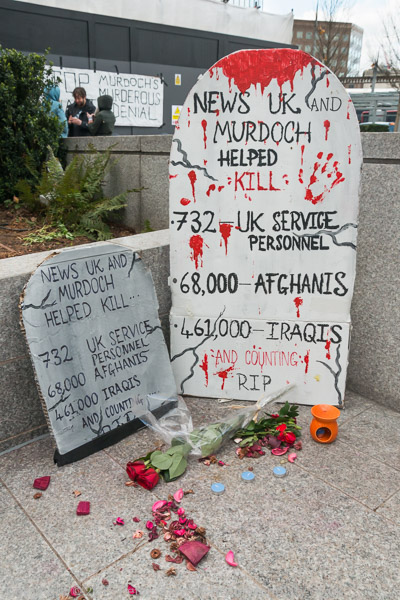 OP MURDOCH'S
MURDEROUS
DENIAL
NEWS UK AND
MURDOCH
HELPED
KILL
732-UK SERVICE
PERSONNEL
·68,000-AFGHANIS
·461,000-IRAQIS
·AND COUNTING
RIP
NEWS UK AND
MURDOCH
HELPED KILL...
732 UK SERVICE
PERSONNEL
68000 AFGHANIS
461,000 IRAQIS
AND COUNTING